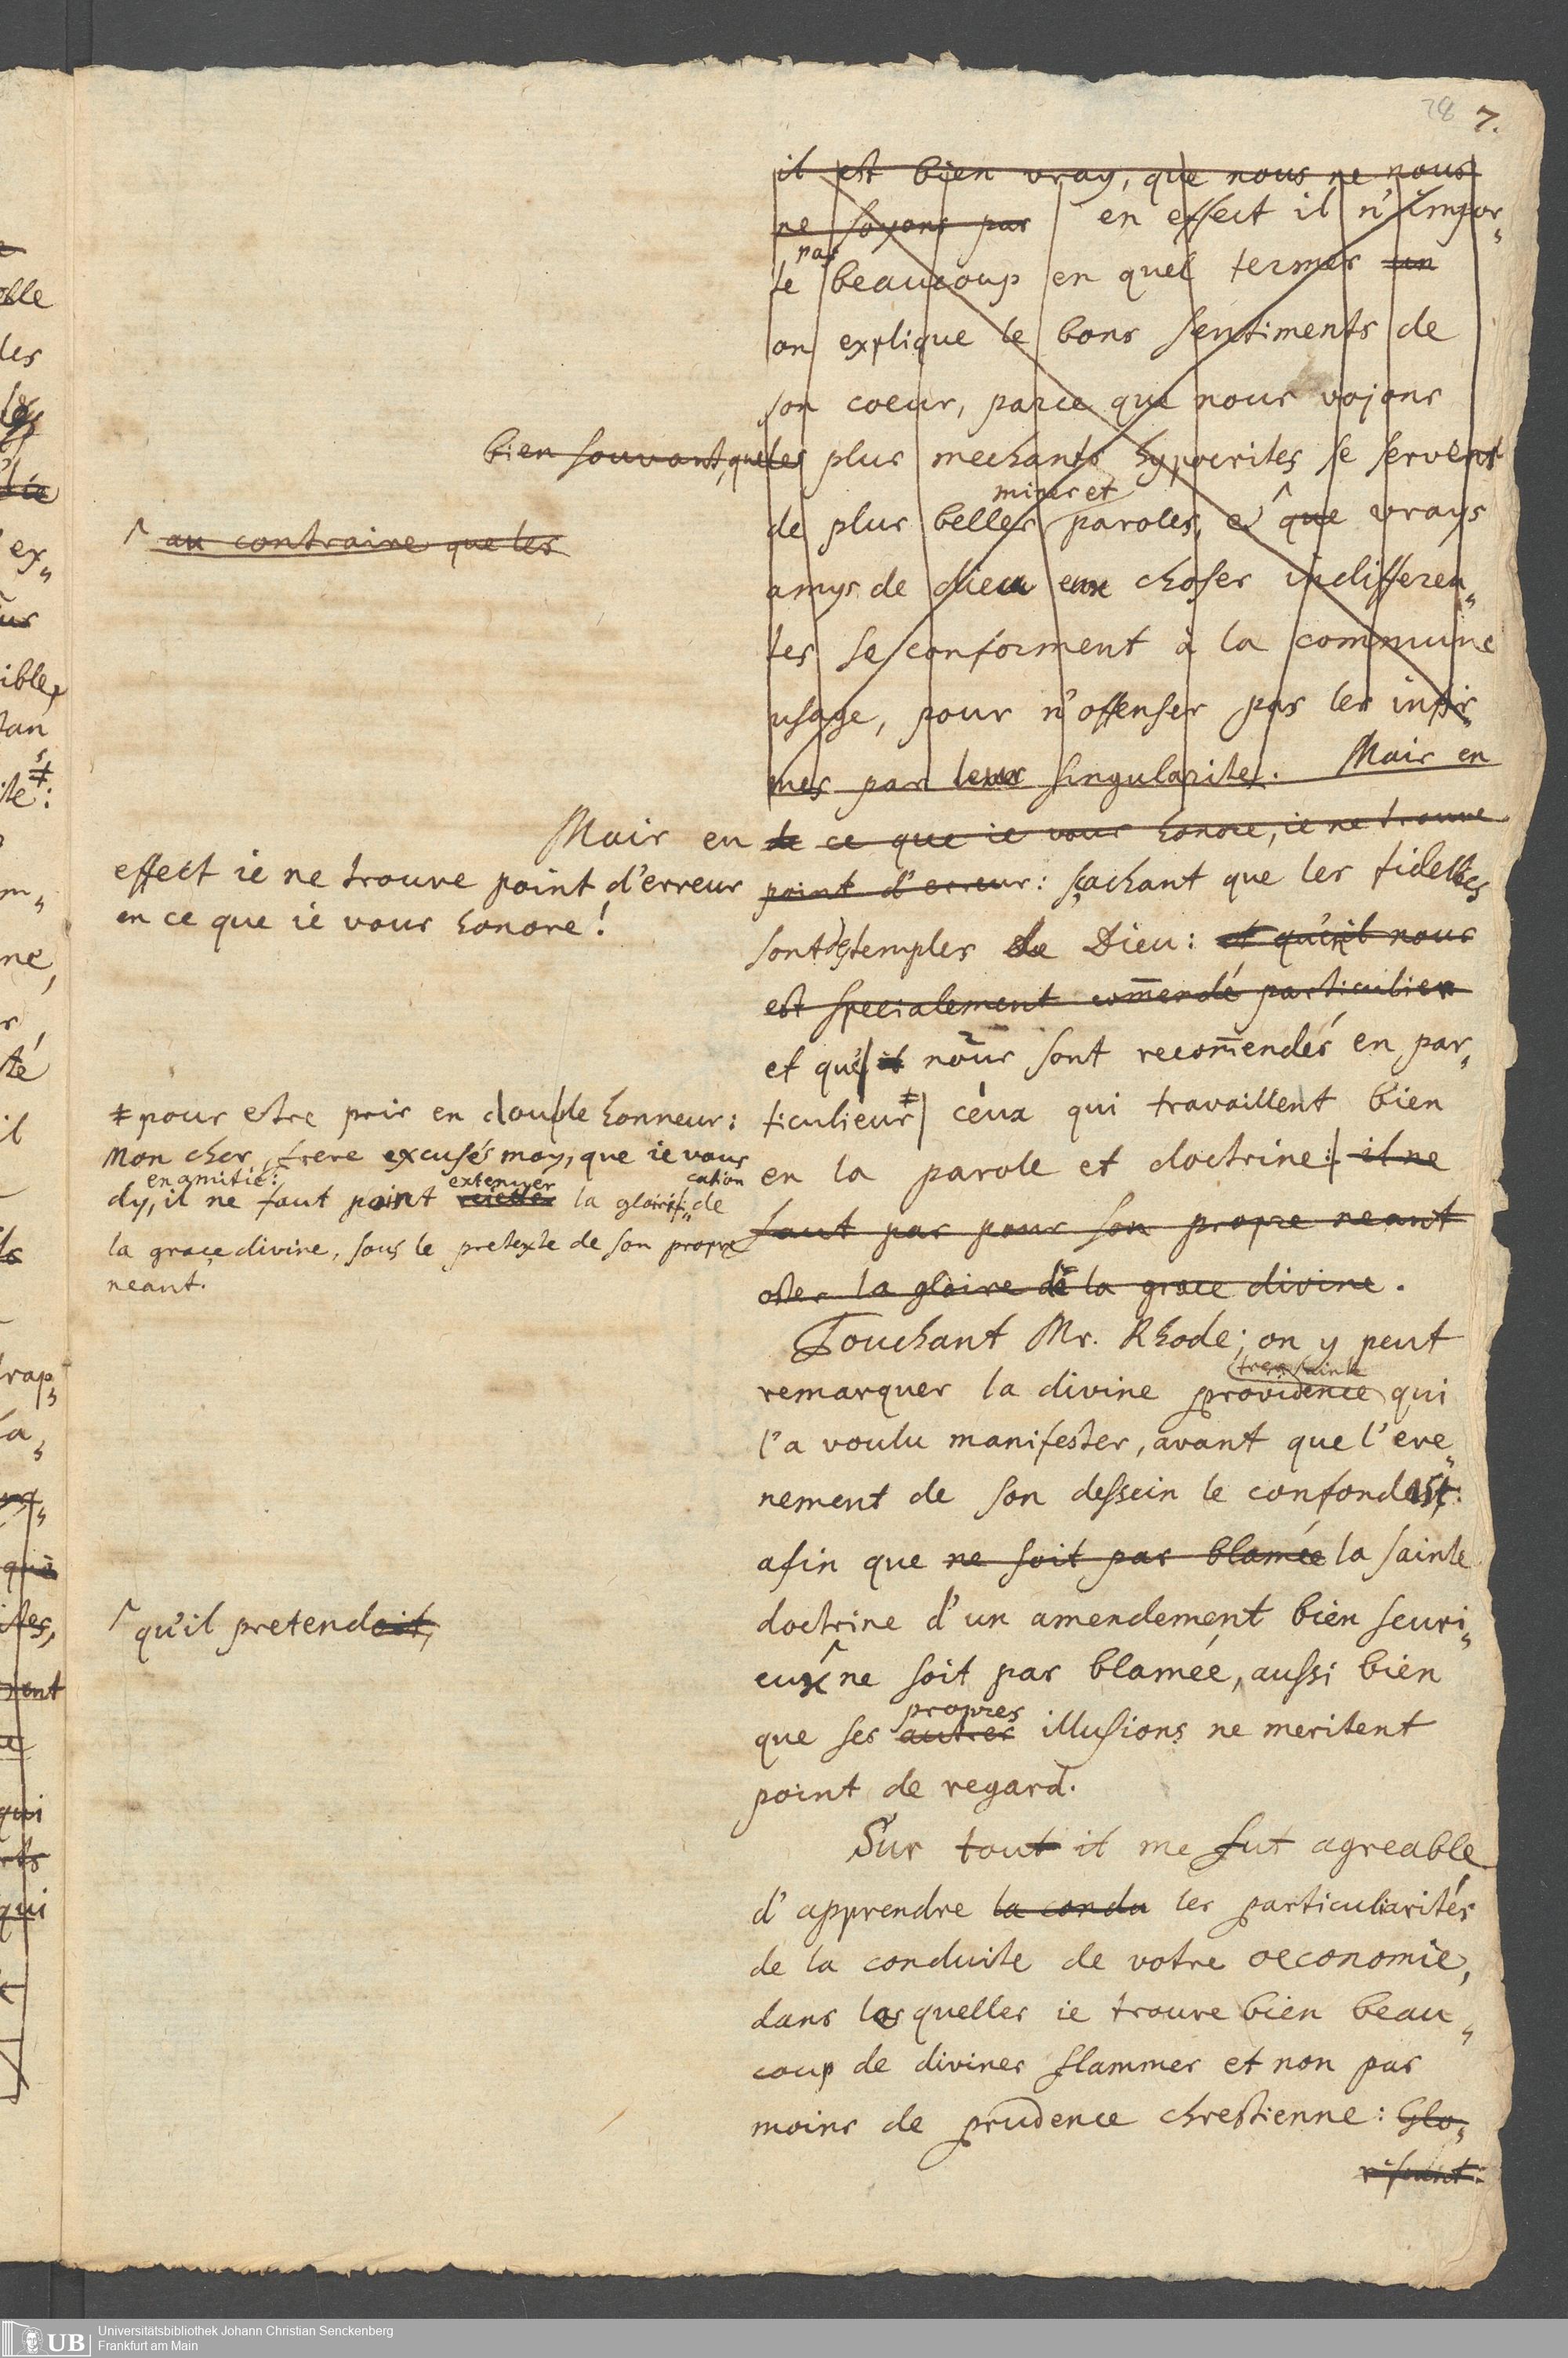 78 7.
il est bien vray, que nous ne nous
ne soyons pas en effect il n'impor„
te pas beaucoup en quel termes un
on explique le bons sentiments de
son coeur, parce que nous vojons
bien souvant, que les plus mechants hypocrites se servent
de plus belles mines et paroles, e que vrays
^ au contraire que les
amys de dieu choses indifferen„
tes se conforment à la commune
usage, pour n'offenser pas les infir„
mes par leur singularites. Mais en
de ce que ie vous honore, ie ne trouve
point d'erreur: sçachant que les fidelles
Mais en
effect ie ne trouve point d'erreur
en ce que ie vous honore!
sont des temples de Dieu: et qu'il nous
est specialement com̄endé particulier
et que il nous sont recom̄endés en par„
ticulieur ‡ ceux qui travaillent bien
en la parole et doctrine: il ne
faut pas pour son propre neant
oster la gloire de la grace divine.
‡ pour estre pris en double honneur:
Mon cher frere excusés moy, que ie vous
dy, en amitié: il ne faut point extenuer la glorifi„cation de
la grace divine, sous le pretexte de son propre
neant.
Touchant Mr. Rhode; on y peut
remarquer la divine tres sainte providence qui
l'a voulu manifester, avant que l'eve„
nement de son dessein le confondist:
afin que ne soit pas blamée la sainte
doctrine d'un amendement bien seuri„
eux ^ ne soit pas blamée, aussi bien
^ qu'il pretendoit,
que ses autres propres illusions ne meritent
point de regard.
Sur tout il me fut agreable
d'apprendre la condu les particuliarités
de la conduite de votre oeconomie,
dans lesquelles ie trouve bien beau„
coup de divines flammes et non pas
moins de prudence chrestienne: Glo„
rifiant:
UB Universitätsbibliothek Johann Christian Senckenberg
Frankfurt am Main